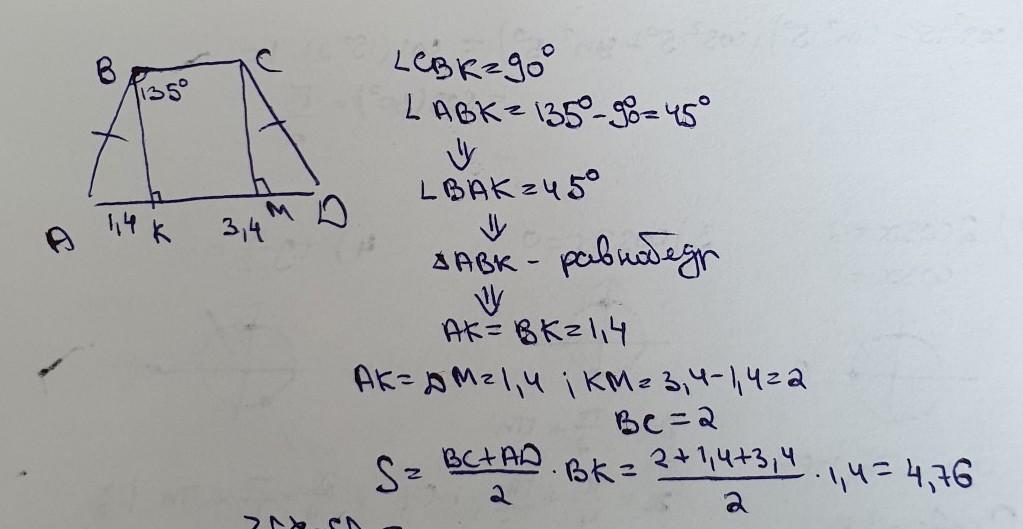 B C
135°
A 1,4 K 3,4 M D
∠CBK=90°
∠ABK=135°-90=45°
⇓
∠BAK=45°
⇓
ΔABK - равнобедр
⇓
AK=BK=1,4
AK=DM=1,4; KM=3,4-1,4=2
BC=2
S= (BC+AD)/2 · BK= (2+1,4+3,4)/2 · 1,4=4,76